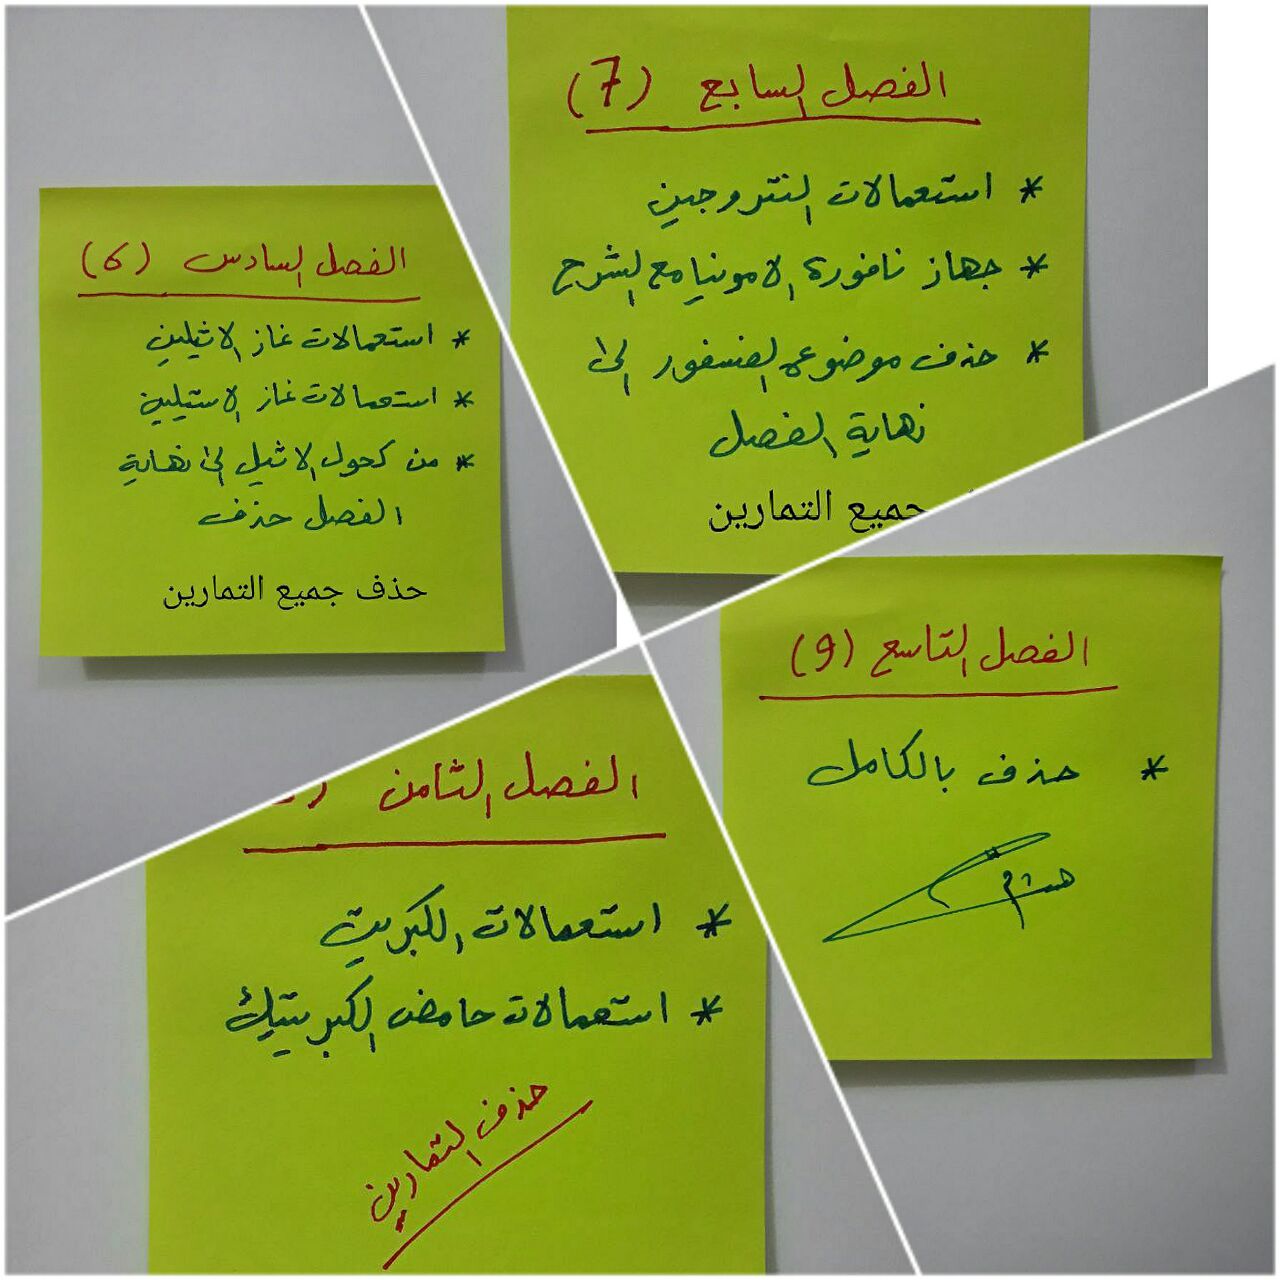 الفصل السادس (6)
* استعمالات غاز الاثيلين
* استعمالات غاز الاستيلين
* من كحول الاثيل الى نهاية
الفصل حذف
حذف جميع التمارين
الفصل السابع (7)
* استعمالات النتروجين
* جهاز نافورة الامونيا مع الشرح
* حذف موضوع الفسفور الى
نهاية الفصل
جميع التمارين
الفصل الثامن
* استعمالات الكبريت
* استعمالات حامض الكبريتيك
حذف التمارين
الفصل التاسع (9)
* حذف بالكامل